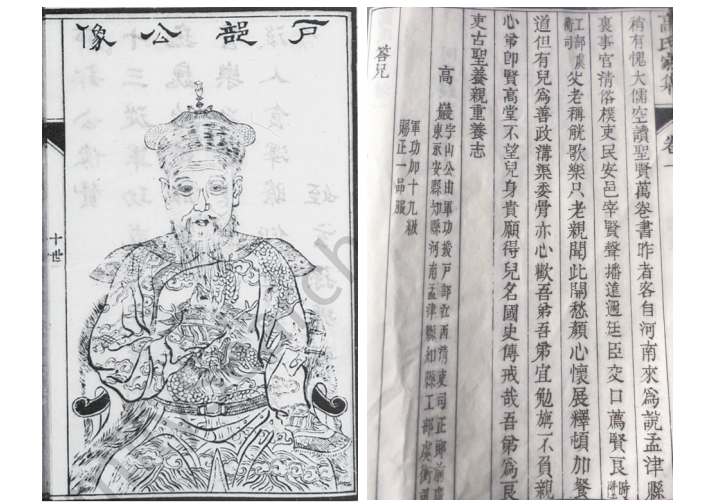 戶部公像
十世
高氏家集 卷一
稍有愧大儒空讀聖賢萬卷書昨者客自河南來為說孟津縣
裏事官清俗樸吏民安邑宰賢聲播遠邇廷臣交口薦賢良時
工部虞衡司父老稱觥歌樂只老親聞此開愁顏心懷展釋頓加餐
道但有兒為善政溝渠委骨亦心歡吾弟吾弟宜勉旃不負親
心常即賢高堂不望兒身貴願得兒名國史傳戒哉吾弟為良
吏古聖養親重養志
高巖
字山公由軍功授戶部江西清吏司正郎前廣
東永安縣知縣河南孟津縣知縣工部虞衡司
軍功加十九級
賜正一品服
答兄